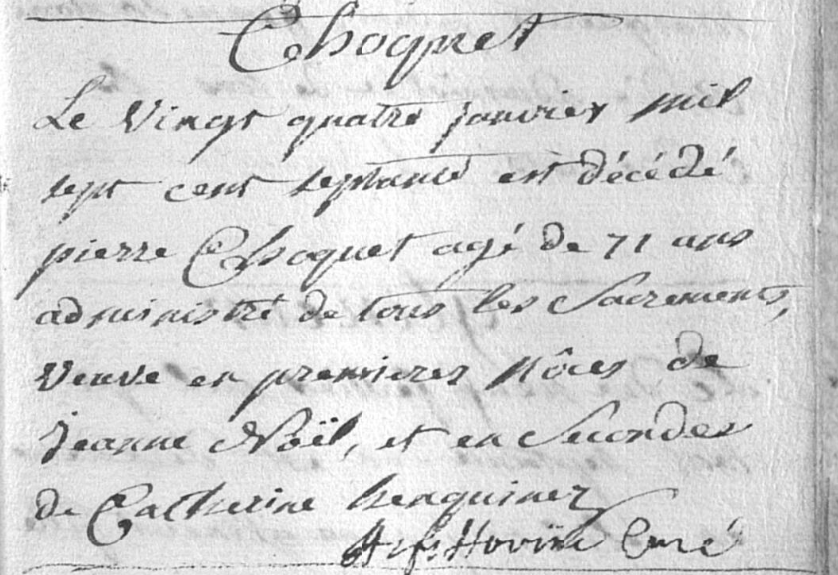 Choquet
Le Vingt quatre janvier mil
sept cent septante est décédé
pierre Choquet agé de 71 ans
administré de tous les Sacrements,
Veuve en premieres nôces de
Jeanne Noël, et en Secondes
de Catherine henquinez
Hovine Curé